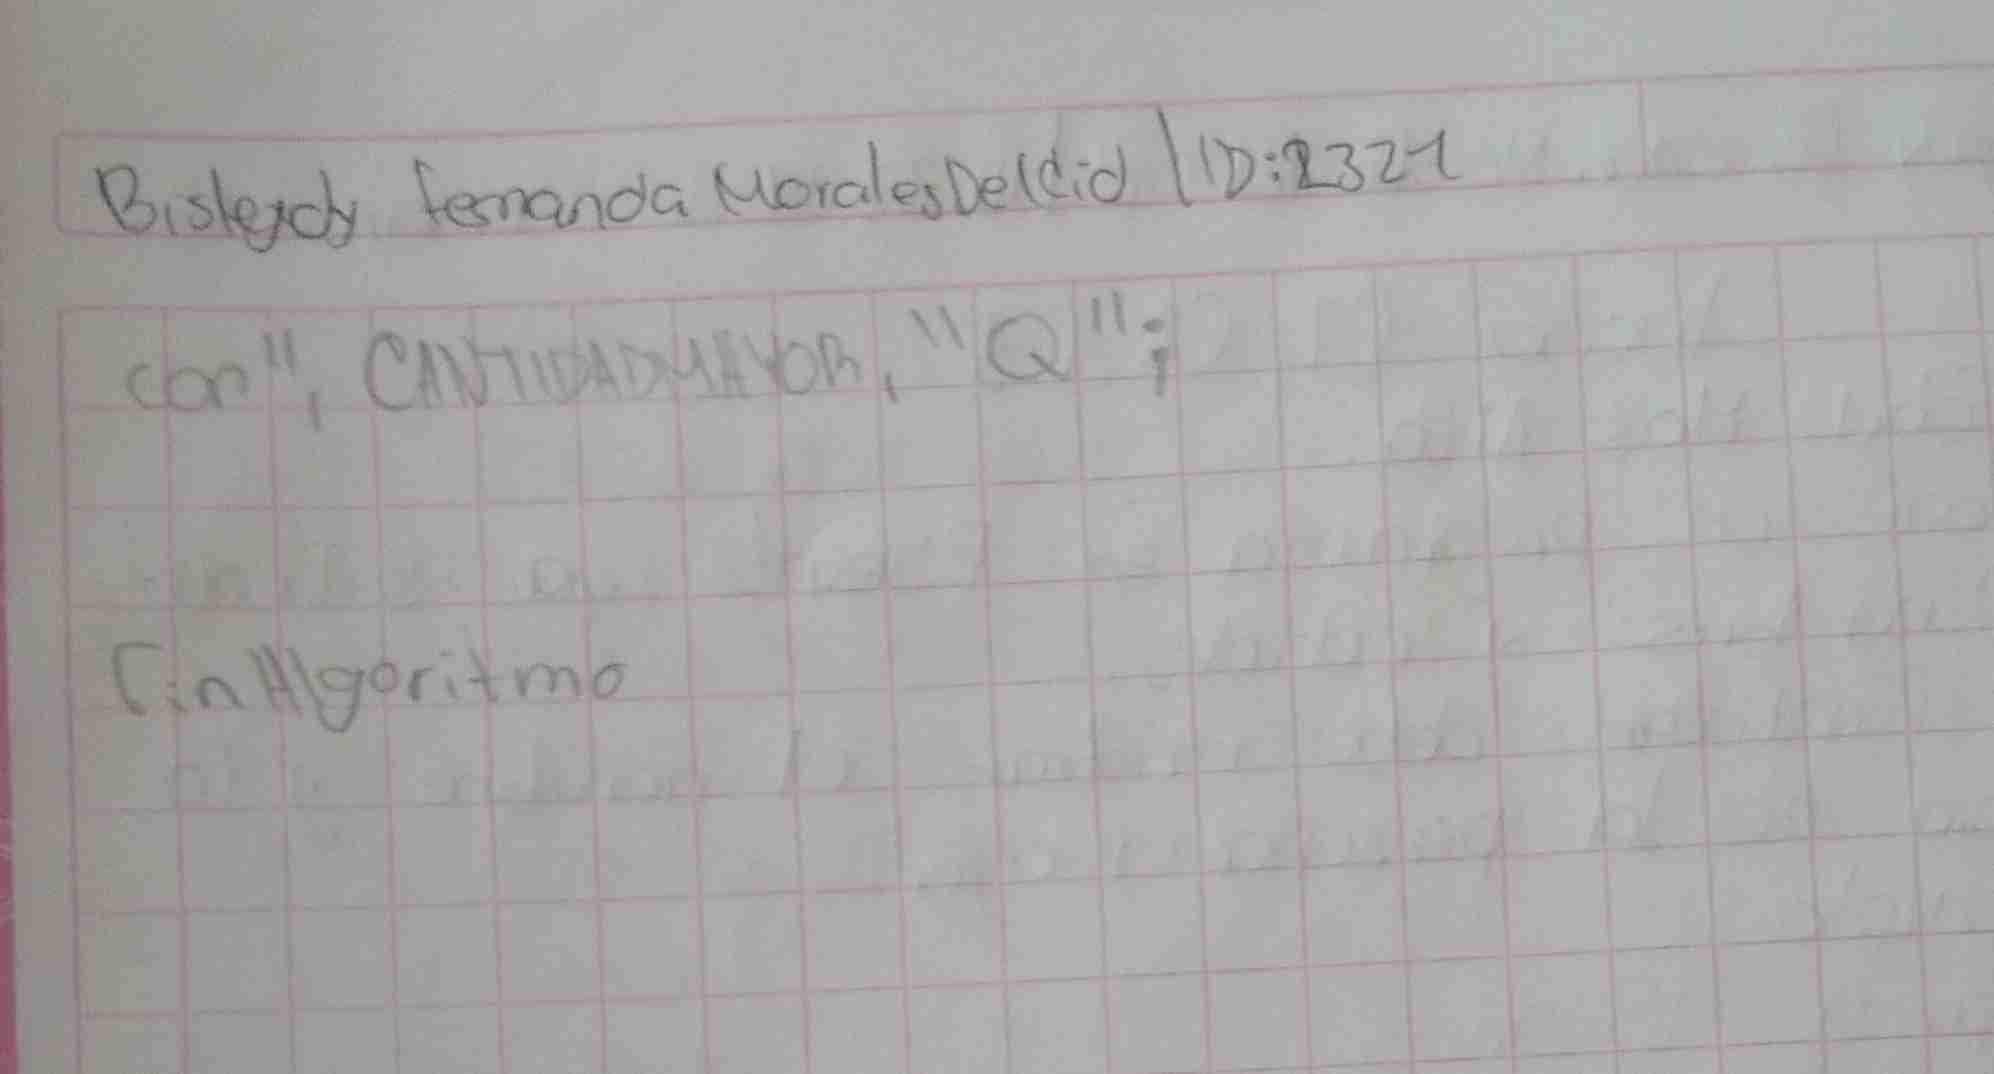 Bisleydy fernanda Morales Del Cid | ID:2321
con", CANTIDADMAYOR, "Q";
FinAlgoritmo